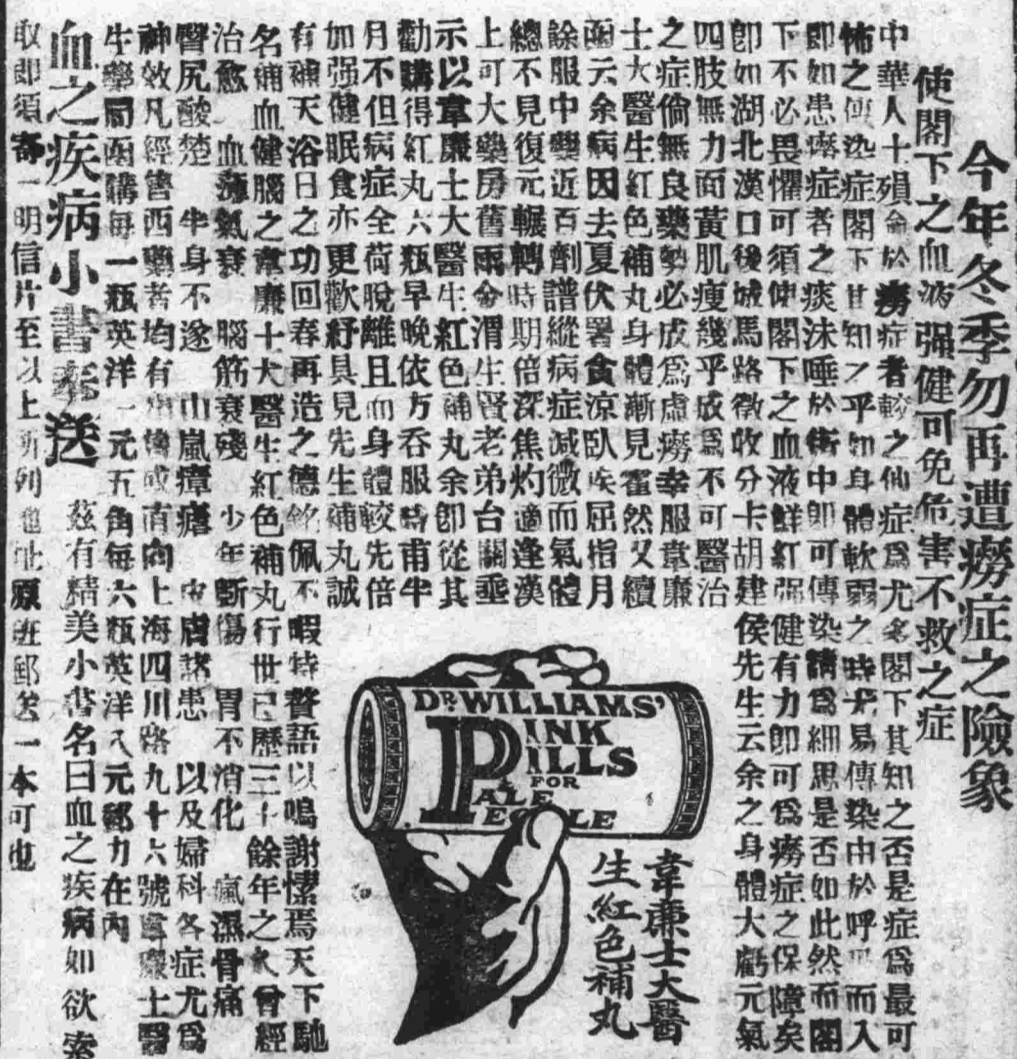 今年冬季勿再遭癆症之險象
使閣下之血液强健可免危害不救之症
中華人十殞命於癆症者較之他症爲尤多閣下其知之否是症爲最可
怖之傳染症閣下其知之乎如身體軟弱之時尤易傳染由於呼吸而入
即如患癆症者之痰沫唾於街中卽可傳染請爲細思是否如此然而閣
下不必畏懼可須使閣下之血液鮮紅强健有力卽可爲癆症之保障矣
卽如湖北漢口後城馬路徵收分卡胡建侯先生云余之身體大虧元氣
四肢無力面黃肌瘦幾乎成爲不可醫治
之症倘無良藥勢必成爲虛癆幸服韋廉
士大醫生紅色補丸身體漸見霍然又續
函云余病因去夏伏暑食凉臥疾屈指月
餘服中藥近百劑譜縱病症減微而氣體
總不見復元輾轉時期倍深焦灼適逢漢
上可大藥房舊雨俞渭生賢老弟台關垂
示以韋廉士大醫生紅色補丸余卽從其
勸購得紅丸六瓶早晚依方吞服時甫半
月不但病症全荷脫離且血身體較先倍
加强健眠食亦更歡紓具見先生補丸誠
有補天浴日之功回春再造之德銘佩不暇特贅語以鳴謝愫焉天下馳
名補血健腦之韋廉士大醫生紅色補丸行世已歷三十餘年之久曾經
治愈 血薄氣衰 腦筋衰殘 少年斲傷 胃不消化 瘋濕骨痛
臀尻酸楚 半身不遂 山嵐瘴瘧 皮膚諸患 以及婦科各症尤爲
神效凡經售西藥者均有出售或直向上海四川路九十六號韋廉士醫
生藥局函購每一瓶英洋一元五角每六瓶英洋八元郵力在內
血之疾病小書奉送 茲有精美小書名曰血之疾病如欲索
取即須寄一明信片至以上所列地址原班郵送一本可也
DR WILLIAMS'
PINK
PILLS
FOR
PALE
PEOPLE
韋廉士大醫
生紅色補丸